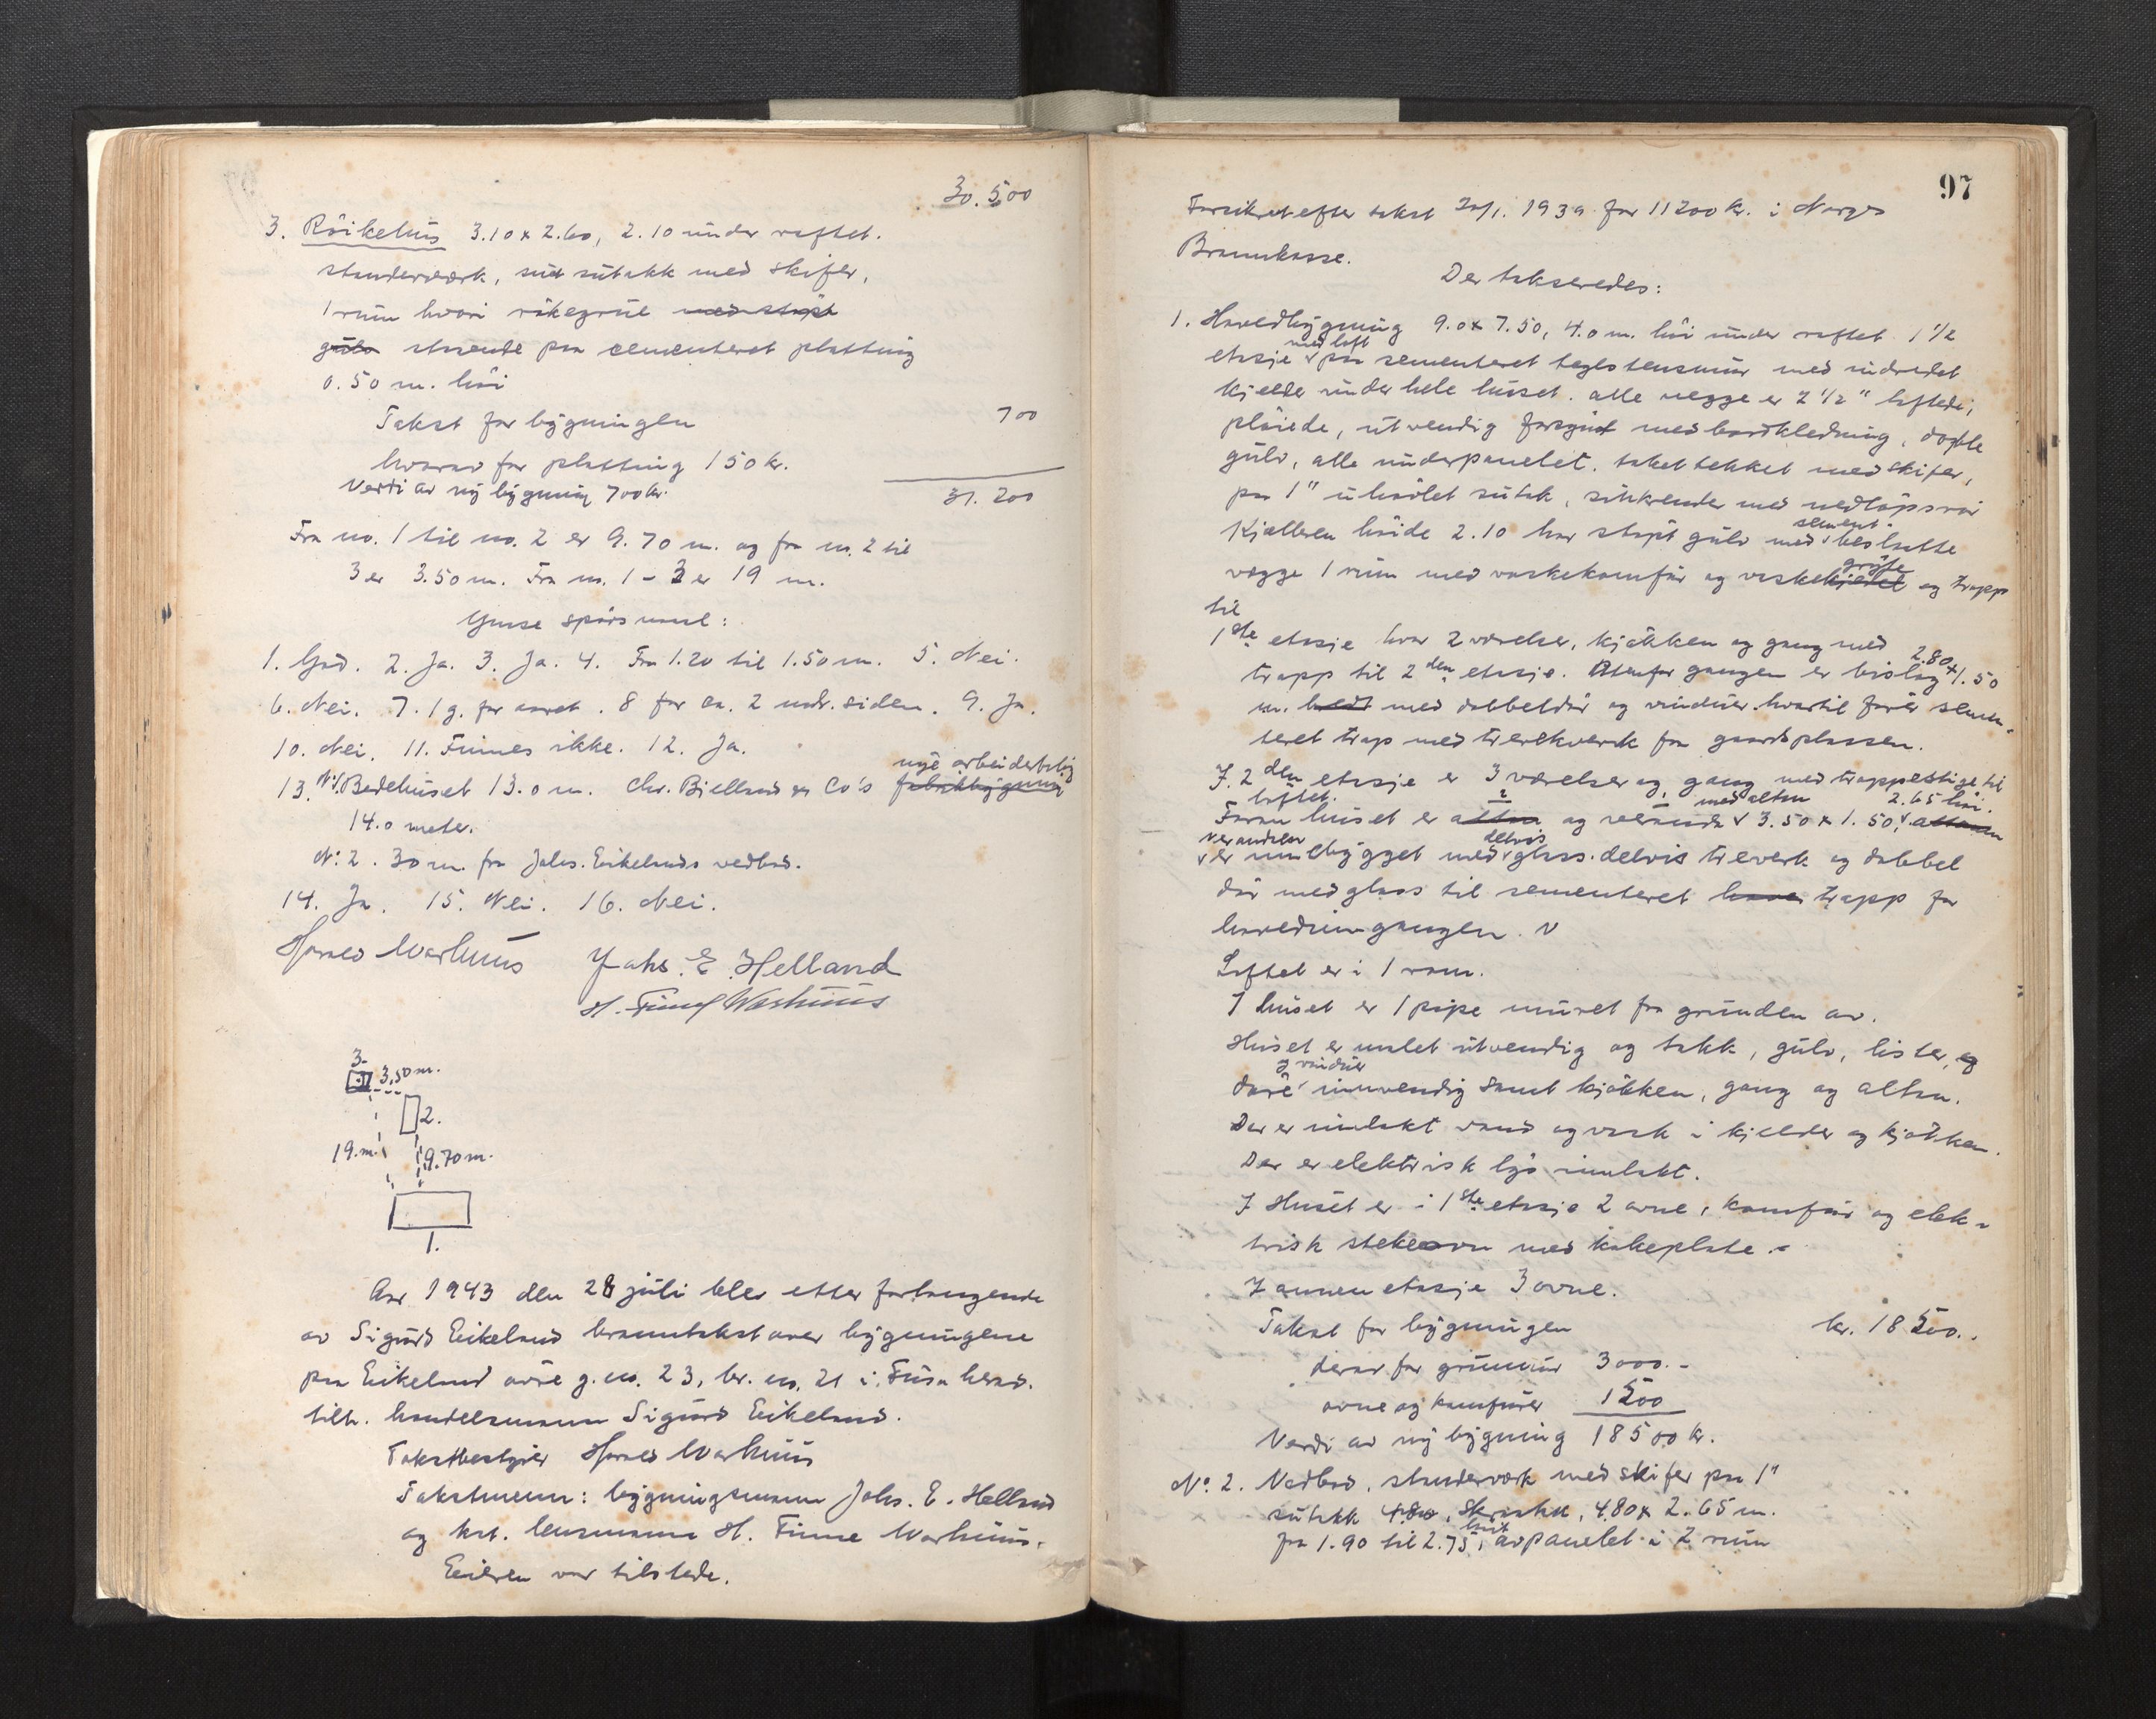 30.500
3. Röikehus 3.10 x 2.60, 2.10 under raftet.
standerværk, med sutakk med skifer,
1 rum hvori rökegrue med stöpt
gulv staaende paa cementeret platting
0.50 m. höi
Takst for bygningen 700
hvorav for platting 150 kr.
Verdi av ny bygning 700 kr. 31.200
Fra no. 1 til no. 2 er 9.70 m. og fra no. 2 til
3 er 3.50 m. Fra no. 1 - 3 er 19 m.
Ymse spörsmaal:
1. God. 2. Ja. 3. Ja. 4. Fra 1.20 til 1.50 m. 5. Nei.
6. Nei. 7. 1 g. for aaret. 8 for ca. 2 mdr. siden. 9. Ja.
10. Nei. 11. Finnes ikke. 12. Ja.
nye arbeiderbolig
13. No. 1. Bedehuset 13.0 m. Chr. Bielland & Co's fabrikbygning
14.0 meter.
No. 2. 30 m. fra Johs. Eikelands vedbod.
14. Ja. 15. Nei. 16. Nei.
Harald Warhuus Johs. E. Helland
H. Finne Warhuus
3.
3,50 m.
2.
19. m. 9.70 m.
1.
Aar 1943 den 28 juli blev etter forlangende
av Sigurd Eikeland branntakst over bygningene
paa Eikeland övre g. no. 23, br. no. 21 i Fusa herad.
tilh. handelsmann Sigurd Eikeland.
Takstbestyrer Harald Warhuus
Takstmenn: bygningsmann Johs. E. Helland
og kst. lensmann H. Finne Warhuus.
Eieren var tilstede.
97
Forsikret efter takst 20/1. 1939 for 11200 kr. i Norges
Brannkasse.
Der takseredes:
1. Hovedbygning 9.0 x 7.50, 4.0 m. höi under raftet 1 1/2
med loft
etasje v paa sementeret teglstensmur med indredet
kjelder under hele huset. alle vegge er 2 1/2" laftede,
plöiede, utvendig forsynt med bordkledning, doble
gulv, alle underpanelet. taket tekket med skifer,
paa 1" uhövlet sutak, sinkrender med nedlöpsrör
sement
Kjælleren höide 2.10 har stöpt gulv med v beslatte
gryte
vægge 1 rum med vaskekomfur og vaskekjedel og trapp
til
1ste etasje hvor 2 værelser, kjökken og gang med
2.80 x 1.50
trapp til 2den etasje. Utenfor gangen er bislag
m. bredt med dobbeldör og vinduer hvortil förer semen-
teret trap med trerekverk fra gaardsplassen.
I. 2den etasje er 3 værelser og gang med trappestige til
loftet. med altan 2.65 höi.
Foran huset er altan og veranda v 3.50 x 1.50, v. altanen
verandaen delvis
v er innbygget med v glass. delvis treverk og dobbel
dör med glass til sementeret have trapp for
hovedinngangen. v
Loftet er i 1 rom.
I huset er 1 pipe muret fra grunden av.
Huset er malet utvendig og takk, gulv, lister, og
og vinduer
döre innvendig samt kjökken, gang og altan.
Der er innlakt vand og vask i kjelder og kjökken.
Der er elektrisk lys innlakt.
I Huset er i 1ste etasje 2 ovne, komfur og elek-
trisk stekeovn med kokeplate.-
I annen etasje 3 ovne.
Takst for bygningen kr. 18500.-
derav for grunnmur 3000.-
ovne og komfurer 1500
Verdi av ny bygning 18500 kr.
No. 2. Vedbod, standerværk med skifer paa 1"
sutakk 4.80, skraatak, 4.80 x 2.65 m.
höit
fra 1.90 til 2.75, avpanelet i 2 rum